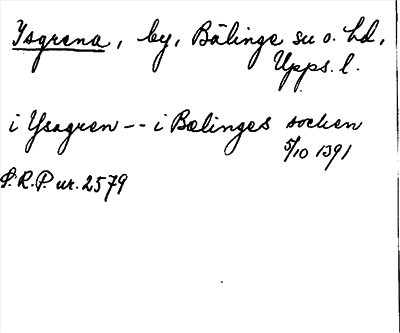 Ysgrena, by, Bälinge su o. hd,
Upps. l.
i Ysagren -- i Bælinges socken
5/10 1391
S.R.P. nr. 2579